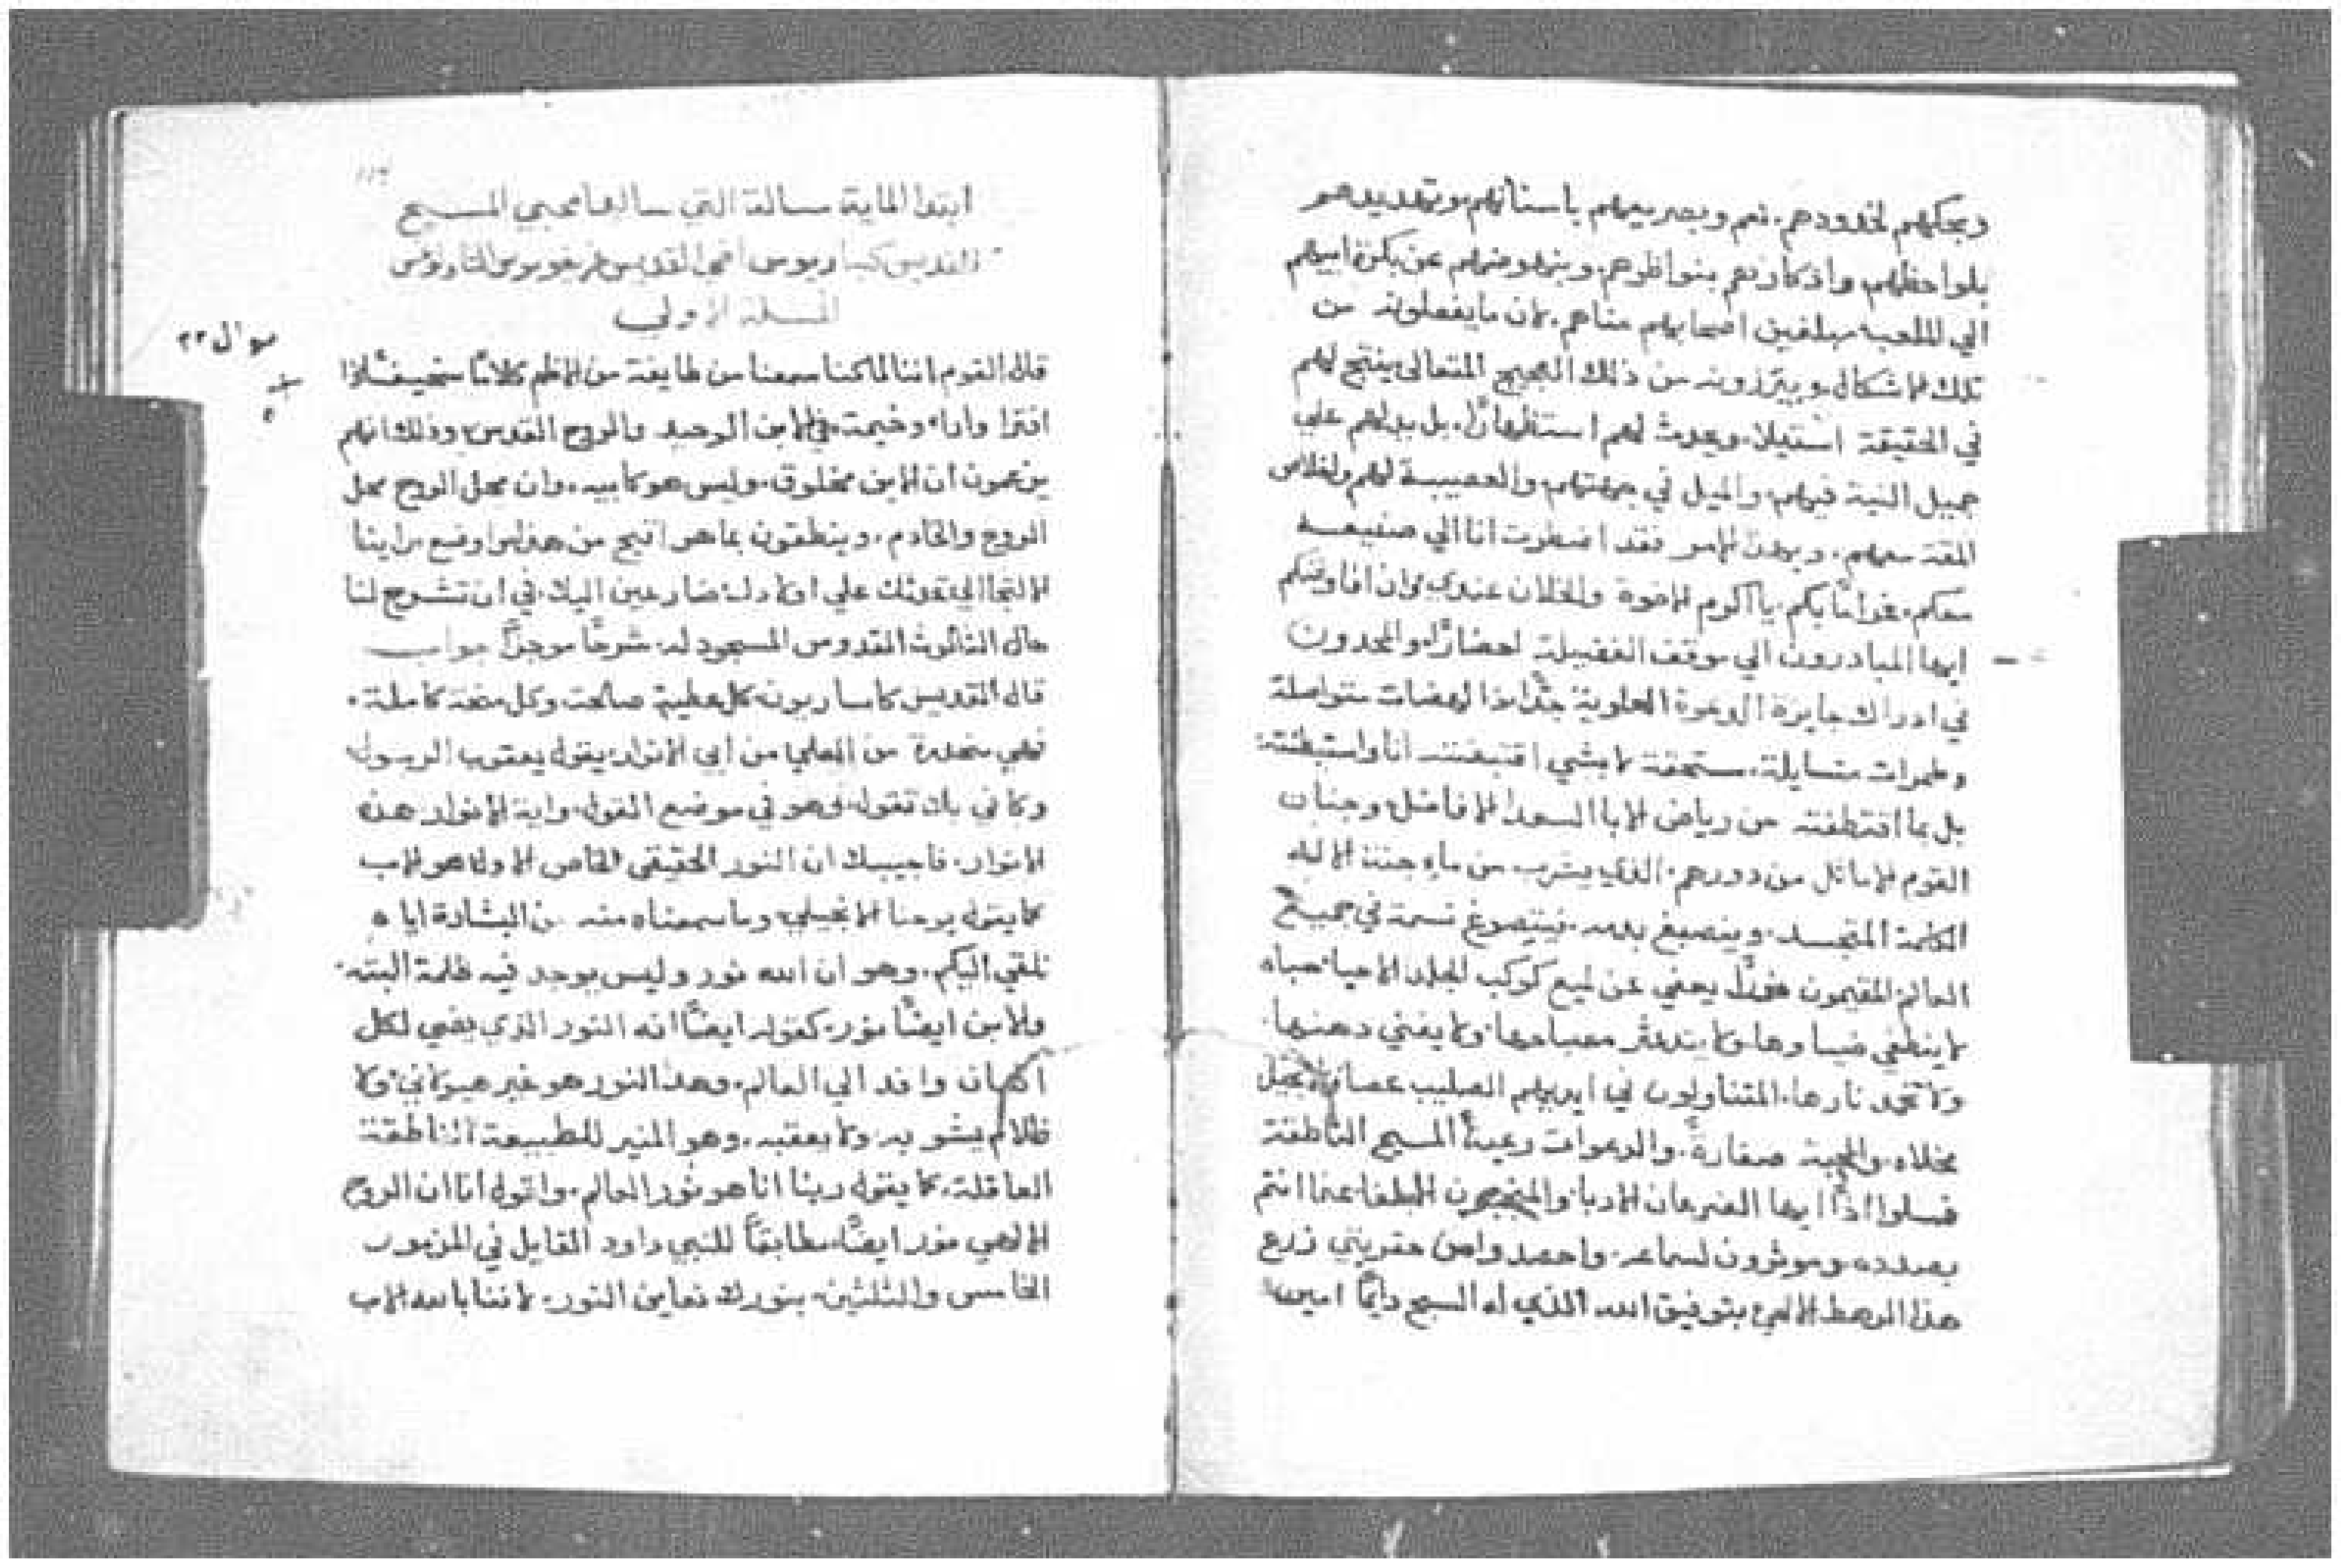 وبحكهم لخدودهم. نعم وبصريرهم باسنانهم وتهديدهم
بلواحظهم واذكارهم بنواظرهم. وبنهوضهم عن بكرة ابيهم
الي الملعبه اصحابهم مناهم. لان ما يفعلونه من
تلك الاشكال ويبرزونه من ذلك العجيج المتعالي ينتج لهم
في الحقيقة استيلا. ويحدث لهم استظهارًا. بل يدلهم علي
جميل النية فيهم. والميل في جهتهم والعصبية لهم ولخلاص
المقة معهم. وبهذا الامر فقد اضطررت انا الي صنيعه
معكم. يا اكرم الاخوة والخلان عندي. وان افاوضكم
ايها المبادرون الي موقف الفضيلة احضارًا. والمجدون
في ادراك جايزة الدعوة العلوية جدًا. لهضات متواصلة
وطمرات متسايلة. مستحقة لا بشي اقتبضته انا واستبطنته
بل بما اقتطفته من رياض الابا السعدا الافاضل. وجنان
القوم الاماثل من دورهم. الذي يشرب من ماء جننه الاله
الكلمة المتجسد. وينصبغ بدمه. في جميع
العالم. المقيمون يغني عن لميع كوكب الاحيا حياه
لا ينطفي ضياوها ولا يندثر مصباحها. ولا يفني دهنها.
ولا تخمد نارها. المتناولون في ايديهم الصليب عصا والانجيل
مخلاه. والمحبة صفارةً. والدعوات رعيةُ المسيح الناطقة
فسلوا اذًا ايها الادبا. والمنجحون الالطفا. عما انتم
بصدده. وموثرون لسماعه. واحصدوا من زرع
هذا الرهط الالهي بتوفيق الله الذي له السبح دايمًا امين
ابتدا الماية مسالة التي سالها محبي المسيح
للقديس كيساريوس اخي القديس غريغوريوس الثاولوغس
المسلة الاولي
سوال ٢٢
قال القوم اننا لما كنا سمعنا من طايفة من الامم كلامًا سخيفًا. اذا
افترا واراء وخيمة. في الابن الوحيد والروح القدس. وذلك انهم
يزعمون ان الابن مخلوق. وليس هو كابيه. وان محل الروح محل
الروح والخادم. وينطقون بما هو اقبح من هذا. راينا
الالتجا الي ضارعين اليك. في ان تشرح لنا
حال الثالوث القدوس المسجود له. شرحًا موجزًا جواب
قال القديس كاساريوس كل عطية صالحة وكل منحة كاملة.
فهي منحدرة من العلي من ابي الانوار. يقول يعقوب الرسول.
وكاني بك تقول. وهو في موضع القول. واية الانوار هذه
الانوار. فاجيبك ان النور الحقيقي الخاص الاول هو الاب
كما يقول يوحنا الانجيلي. وما سمعناه منه من البشارة اياه
نلقي اليكم. وهو ان الله نور وليس يوجد فيه ظلمة البته.
والابن ايضًا نور. كقوله ايضًا انه النور الذي يضي لكل
انسان وافد الي العالم. وهذا النور هو غير هيولاني. ولا
ظلام يشوبه. ولا يعقبه. وهو المنير للطبيعة الناطقة
العاقلة. كما يقول ربنا انا هو نور العالم. واقول انا ان الروح
الالهي نور ايضًا. مطابقًا للنبي داود القايل في المزمور
الخامس والثلثين. بنورك نعاين النور. لاننا بالله الاب